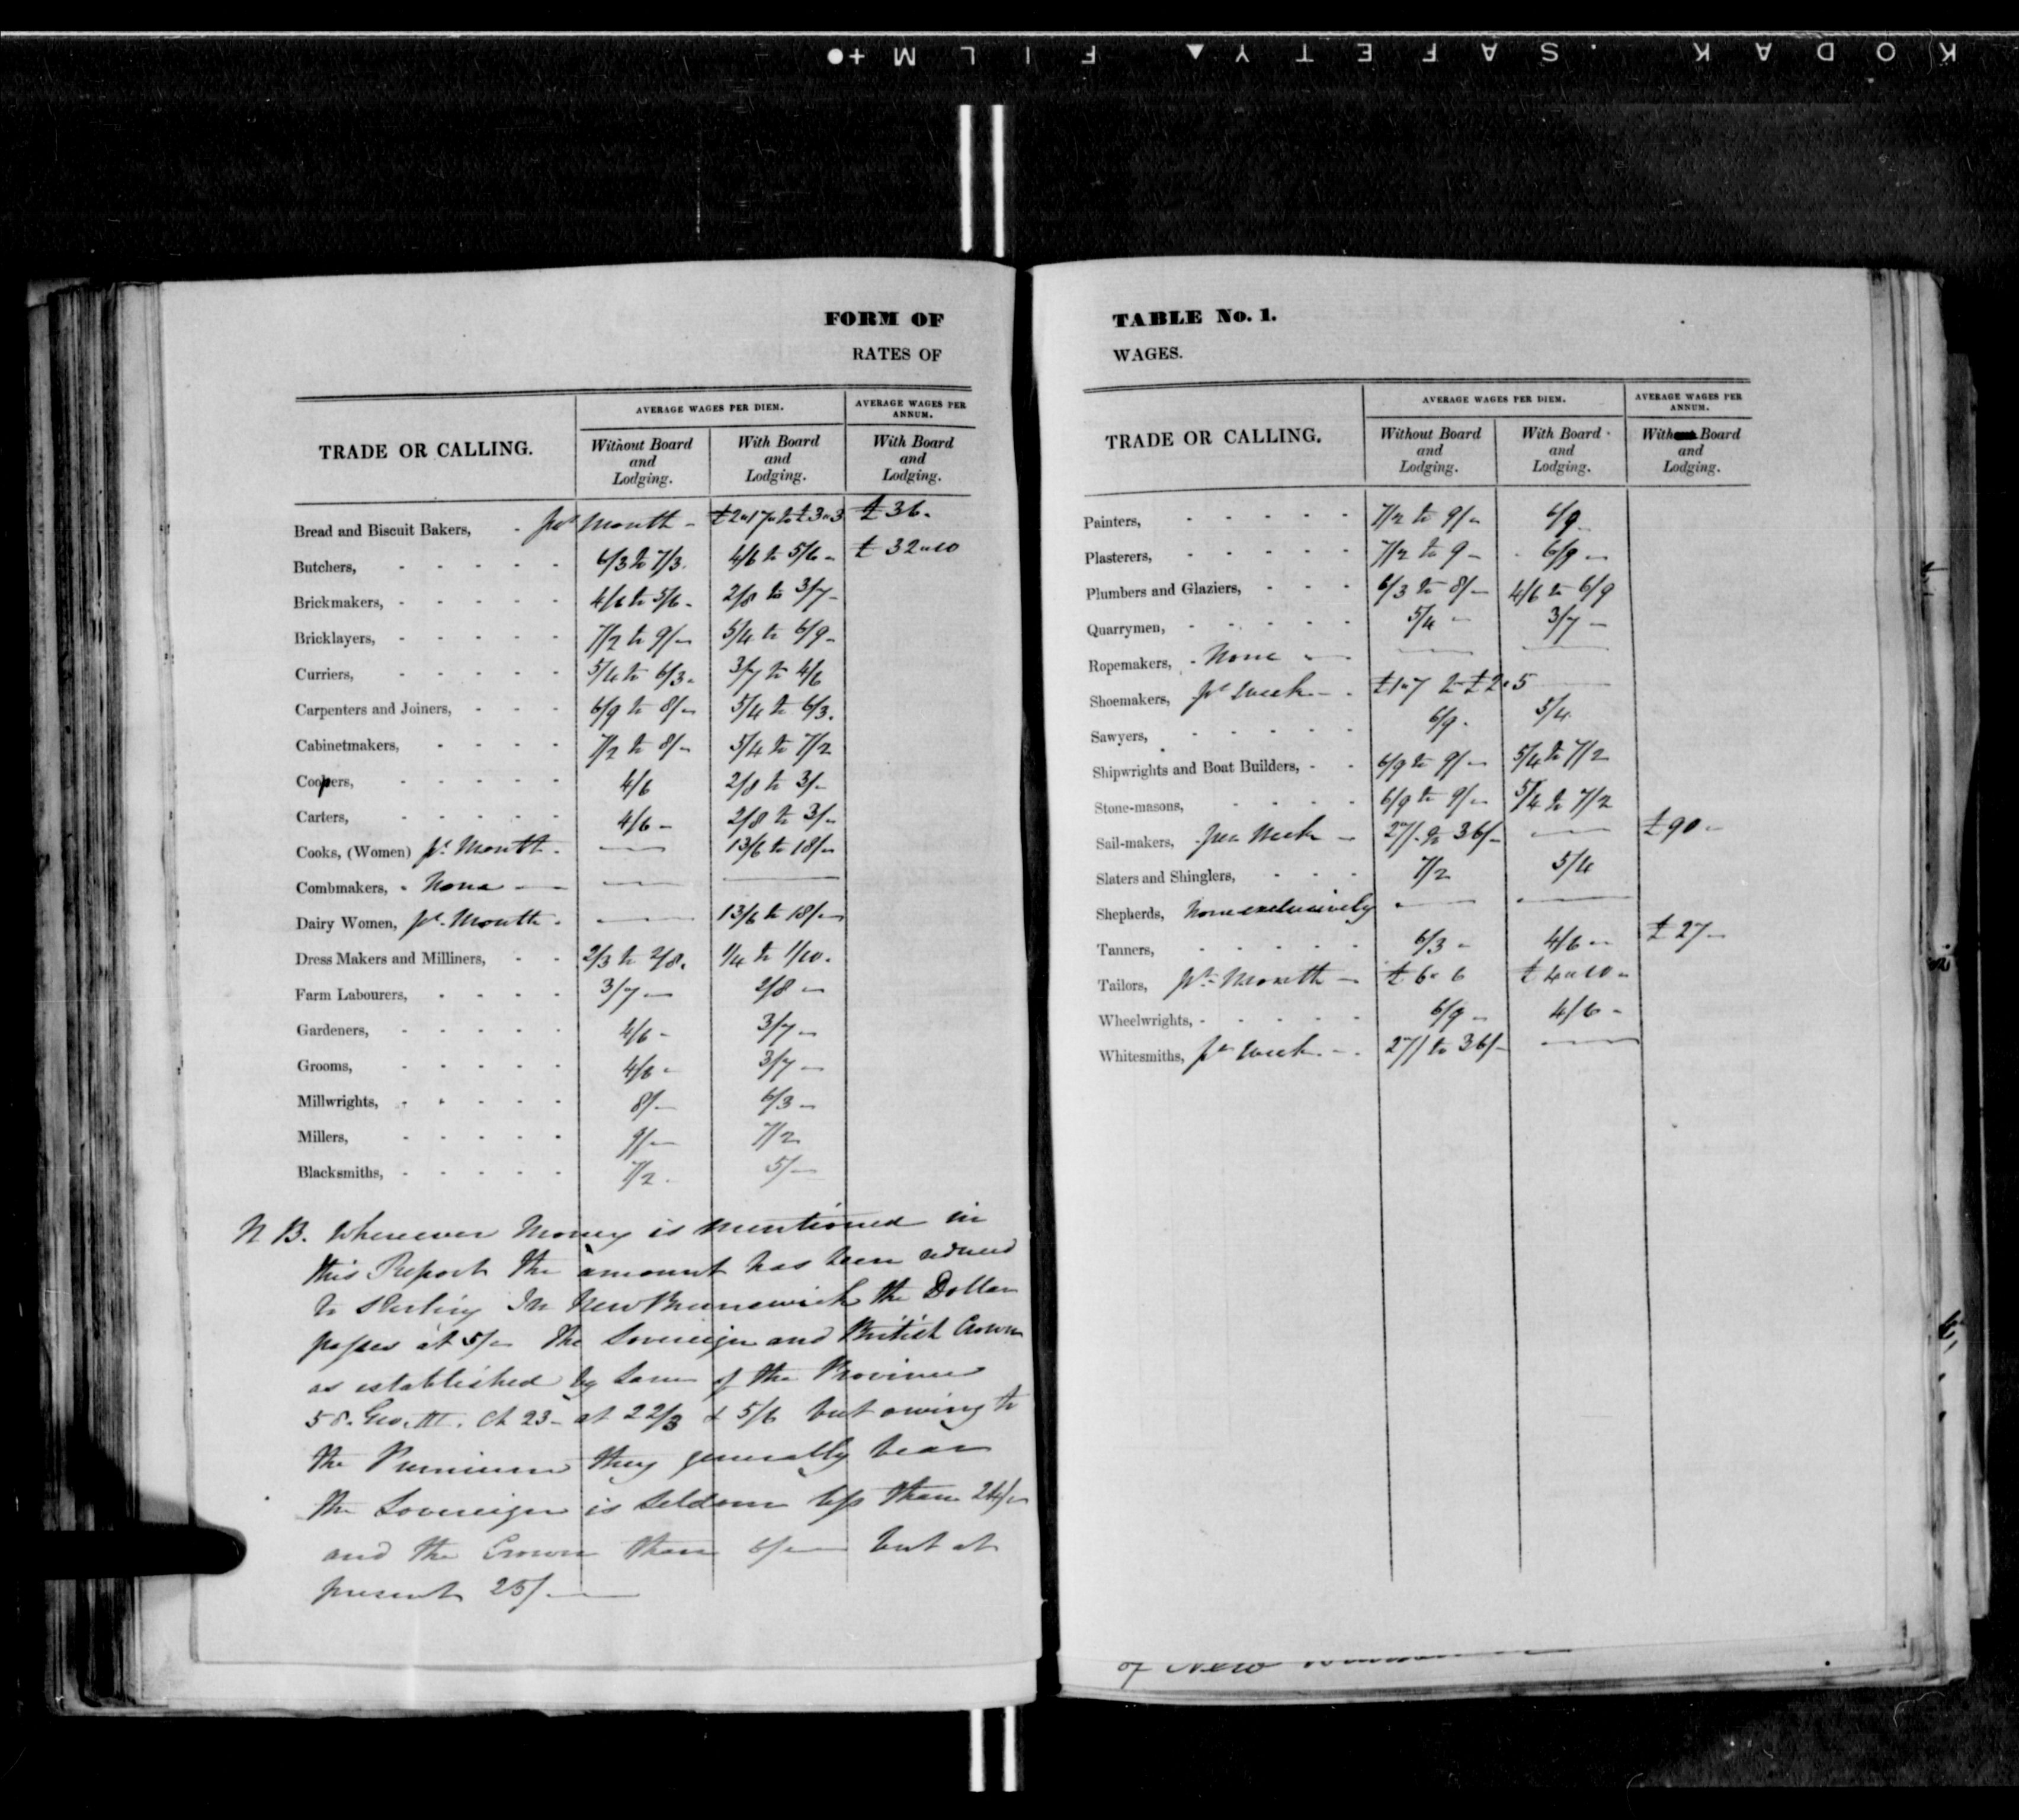 KODAK . SAFETY ▲ FILM +●
FORM OF
RATES OF
TRADE OR CALLING.
AVERAGE WAGES PER DIEM.
AVERAGE WAGES PER ANNUM.
Without Board and Lodging.
With Board and Lodging.
With Board and Lodging.
Bread and Biscuit Bakers, - per Month - £2"17" to £3"3 £36.
Butchers, - - - - - 6/3 to 7/3. 4/6 to 5/6 - £32"10
Brickmakers, - - - - - 4/6 to 5/6 - 2/8 to 3/7 -
Bricklayers, - - - - - 7/2 to 9/- 5/4 to 6/9 -
Curriers, - - - - - 5/4 to 6/3 - 3/7 to 4/6
Carpenters and Joiners, - - - 6/9 to 8/- 5/4 to 6/3.
Cabinetmakers, - - - - 7/2 to 8/- 5/4 to 7/2
Coopers, - - - - - 4/6 2/8 to 3/-
Carters, - - - - - 4/6 - 2/8 to 3/-
Cooks, (Women) pr. Month - — 13/6 to 18/-
Combmakers, - None — — —
Dairy Women, pr. Month - — 13/6 to 18/-
Dress Makers and Milliners, - - 2/3 to 2/8. 1/4 to 1/10.
Farm Labourers, - - - - 3/7 - 2/8 -
Gardeners, - - - - - 4/6 - 3/7 -
Grooms, - - - - - 4/6 - 3/7 -
Millwrights, - - - - - 8/- 6/3 -
Millers, - - - - - 9/- 7/2
Blacksmiths, - - - - - 7/2 - 5/-
N B. Wherever Money is mentioned in
this Report the amount has been reduced
to Sterling In New Brunswick the Dollar
passes at 5/- The Sovereign and British Crown
as established by Laws of the Province
58. Geo. III. Ch 23 - at 22/3 & 5/6 but owing to
the Premium they generally bear
the Sovereign is seldom less than 24/-
and the Crown than 6/- but at
present 25/-
TABLE No. 1.
WAGES.
TRADE OR CALLING.
AVERAGE WAGES PER DIEM.
AVERAGE WAGES PER ANNUM.
Without Board and Lodging.
With Board and Lodging.
With Board and Lodging.
Painters, - - - - - 7/2 to 9/- 6/9
Plasterers, - - - - - 7/2 to 9 - 6/9 -
Plumbers and Glaziers, - - - 6/3 to 8/- 4/6 to 6/9
Quarrymen, - - - - - 5/4 - 3/7 -
Ropemakers, - None - — —
Shoemakers, pr week - - £1"7 to £2"5 —
Sawyers, - - - - - 6/9 - 5/4
Shipwrights and Boat Builders, - - 6/9 to 9/- 5/4 to 7/2
Stone-masons, - - - - 6/9 to 9/- 5/4 to 7/2
Sail-makers, per Week - 27/- to 36/- — £90 -
Slaters and Shinglers, - - - 7/2 5/4
Shepherds, None exclusively — —
Tanners, - - - - - 6/3 - 4/6 - £27 -
Tailors, pr Month - £6"6 £4"10 -
Wheelwrights, - - - - - 6/9 - 4/6 -
Whitesmiths, pr week - - 27/ to 36/- —
of New